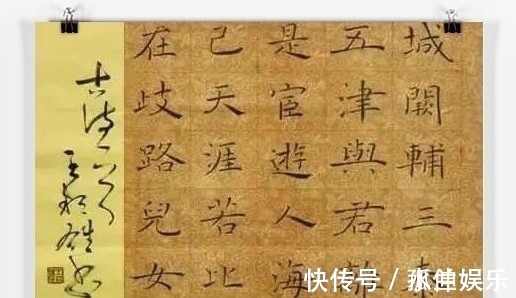 城闕輔三
五津與君
是宦遊人海
己天涯若比
在歧路兒女
古诗一首
快传号 / 娱乐